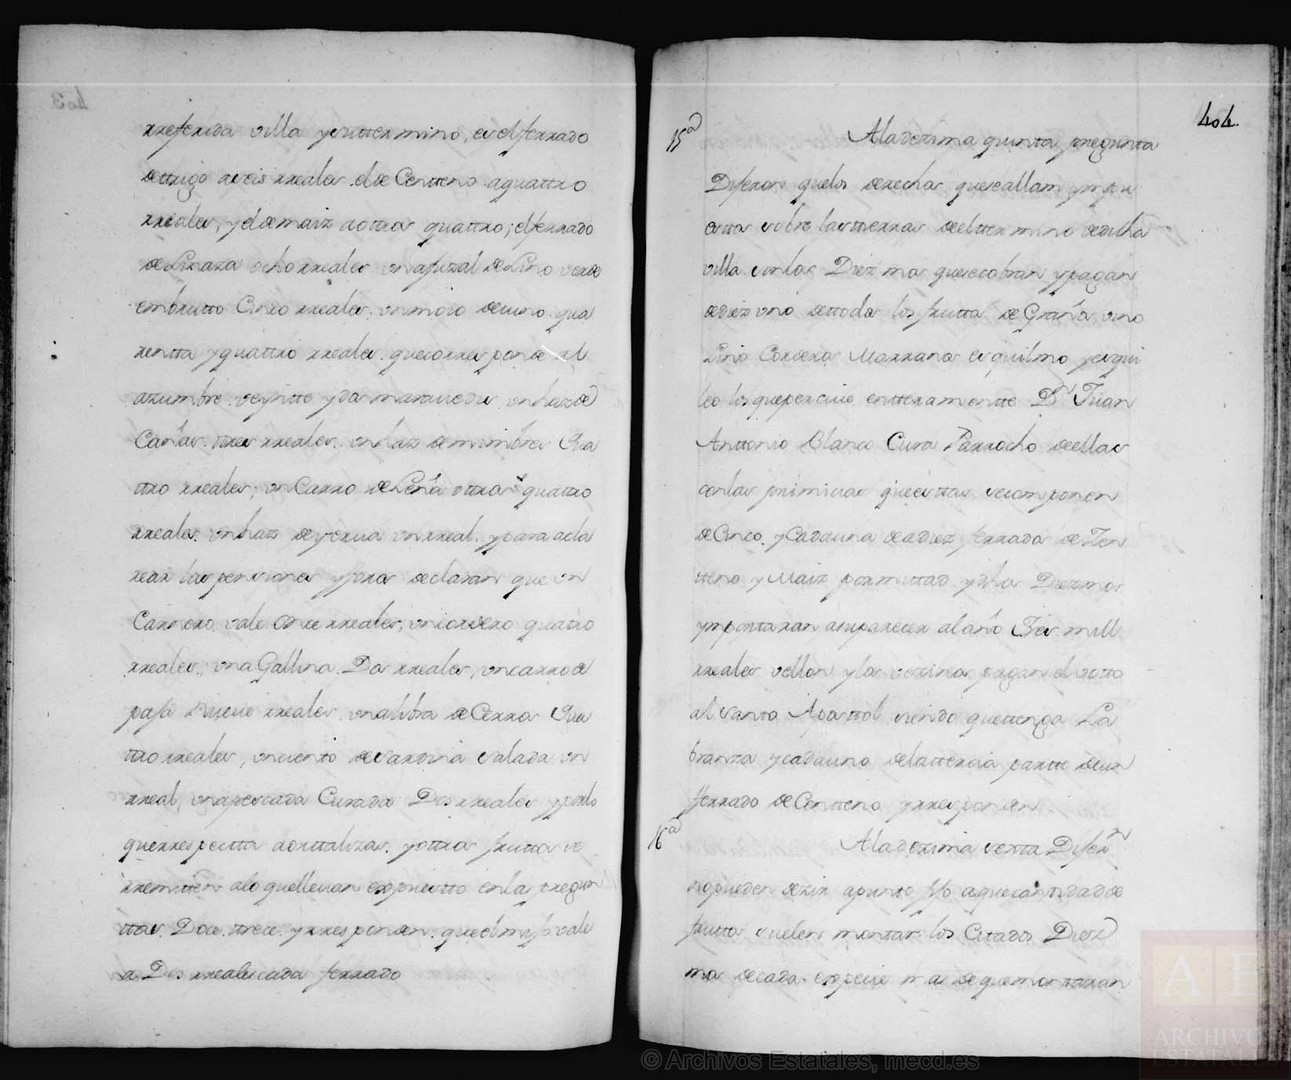 rreferida villa y suttermino, es el ferrado
dettrigo aseis rreales. el de Centteno aquattro
rreales, y el de maiz aottros quattro; el ferrado
de Linaza ocho rreales un afusal de Lino verde
embrutto Cinco rreales. un moio devino qua
rentta y quattro rreales. que corresponde al
azumbre veyntte y dos maravedis un haz de
Cañas. tres rreales. un haz de mimbres Qua
ttro rreales; un Carro de Leña ottros quattro
rreales. un haz de yerva un rreal. y para acla
rear las pensiones y foros declaran que un
Carnero vale Once rreales, un cordero quatro
rreales; una Gallina Dos rreales, un carro de
paja Nueve rreales. una libra de Cerra Qua
ttro rreales, un ciento de sardina salada un
rreal, una pescada Curada Dos rreales y por lo
que rrespectta a ortalizas. y ottros frutos se
rremitten alo que llevan expuestto en las pregun
ttas. Doce. ttrece. y rresponden. que el mijo vale
a Dos rreales cada ferrado
404.
15ª Ala dezima quinta pregunta
Dijeron quelos derechos que se allan ympu
estos sobre las tierras de el ttermino de dicha
villa. son los Diezmos que se cobran y pagan
de diez uno de ttodos los fruttos de Grano, vino
Lino Corderos Marranos esquilmo y esqui
leo los que percive entteramentte Dⁿ Juan
Anttonio Blanco Cura Parrocho de ellas
con las primicias que esttas se componen
de Cinco. y Cada una de a diez ferrados de Zen
tteno y Maiz por mittad y dhos Diezmos
ymportaran asu parecer al año Tres mill
rreales vellon y los vezinos pagan el votto
al santo Aposttol siendo que ttenga La
branza y cada uno de la ttercia partte de un
ferrado de Centteno y rresponden
16ª Ala dezima sexta Dijerⁿ
no pueden dezir apunto fijo a que cantidad de
frutos suelen montar los Citados Diez
mos de cada especie mas de que montaran
ARCHIVOS
ESTATALES
© Archivos Estatales, mecd.es